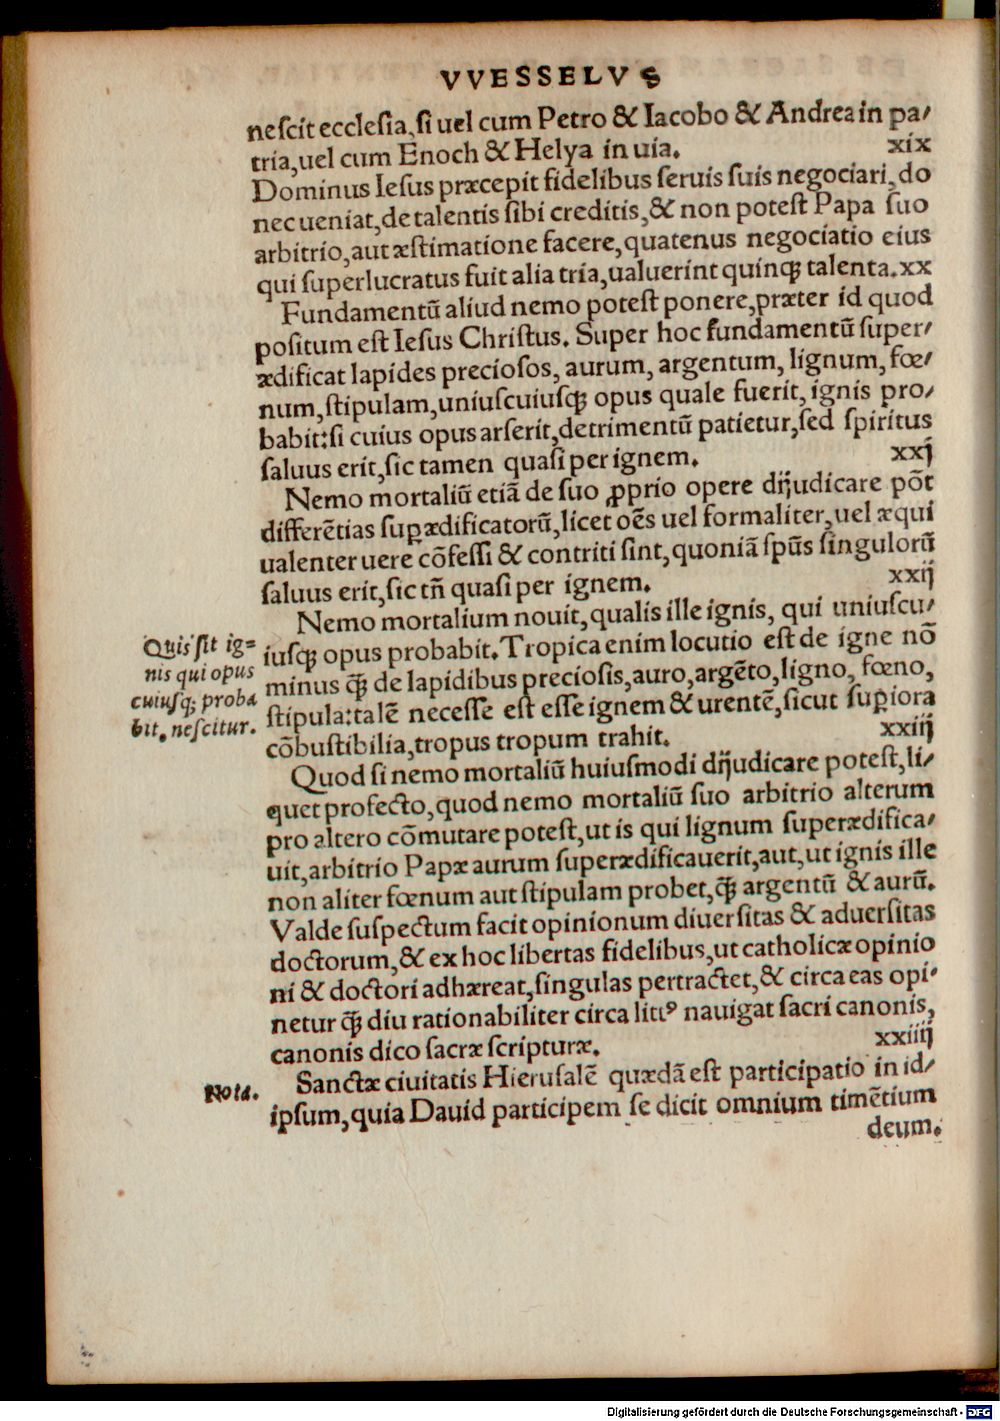 VVESSELVS
nescit ecclesia, si uel cum Petro & Iacobo & Andrea in pa/
tria, uel cum Enoch & Helya in uia. xix
Dominus Iesus præcepit fidelibus seruis suis negociari, do
nec ueniat, de talentis sibi creditis, & non potest Papa suo
arbitrio, aut æstimatione facere, quatenus negociatio eius
qui superlucratus fuit alia tria, ualuerint quinqꝫ talenta. xx
Fundamentū aliud nemo potest ponere, præter id quod
positum est Iesus Christus. Super hoc fundamentū super/
ædificat lapides preciosos, aurum, argentum, lignum, fœ/
num, stipulam, uniuscuiusqꝫ opus quale fuerit, ignis pro/
babit: si cuius opus arserit, detrimentū patietur, sed spiritus
saluus erit, sic tamen quasi per ignem. xxj
Nemo mortaliū etiā de suo ꝓprio opere dijudicare pōt
differētias suꝑædificatorū, licet oēs uel formaliter, uel æqui
ualenter uere cōfessi & contriti sint, quoniā spūs singulorū
saluus erit, sic tñ quasi per ignem. xxij
Nemo mortalium nouit, qualis ille ignis, qui uniuscu/
Quis sit ig=
nis qui opus
cuiusqꝫ proba
bit, nescitur.
iusqꝫ opus probabit. Tropica enim locutio est de igne nō
minus q̄ꝫ de lapidibus preciosis, auro, argēto, ligno, fœno,
stipula: talē necesse est esse ignem & urentē, sicut suꝑiora
cōbustibilia, tropus tropum trahit. xxiij
Quod si nemo mortaliū huiusmodi dijudicare potest, li/
quet profecto, quod nemo mortaliū suo arbitrio alterum
pro altero cōmutare potest, ut is qui lignum superædifica/
uit, arbitrio Papæ aurum superædificauerit, aut, ut ignis ille
non aliter fœnum aut stipulam probet, q̄ꝫ argentū & aurū.
Valde suspectum facit opinionum diuersitas & aduersitas
doctorum, & ex hoc libertas fidelibus, ut catholicæ opinio
ni & doctori adhæreat, singulas pertractet, & circa eas opi/
netur q̄ꝫ diu rationabiliter circa litꝰ nauigat sacri canonis,
canonis dico sacræ scripturæ. xxiiij
Nota.
Sanctæ ciuitatis Hierusalē quædā est participatio in id/
ipsum, quia Dauid participem se dicit omnium timētium
deum.
Digitalisierung gefördert durch die Deutsche Forschungsgemeinschaft - DFG